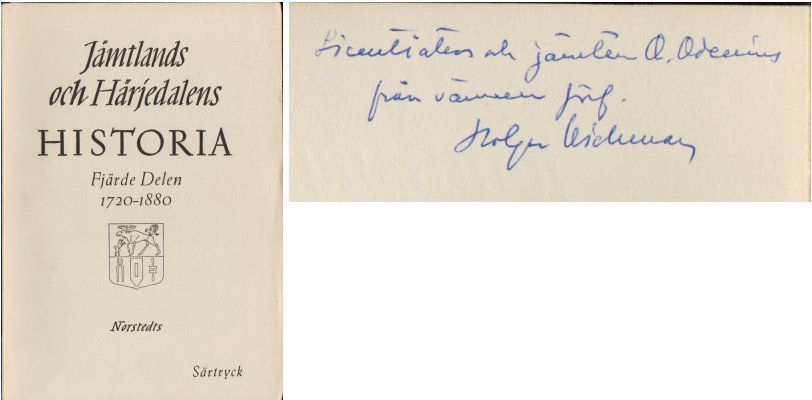 Jämtlands
och Härjedalens
HISTORIA
Fjärde Delen
1720-1880
Norstedts
Särtryck
Licentiaten och jämten O. Odenius
från vännen förf.
Holger Wichman